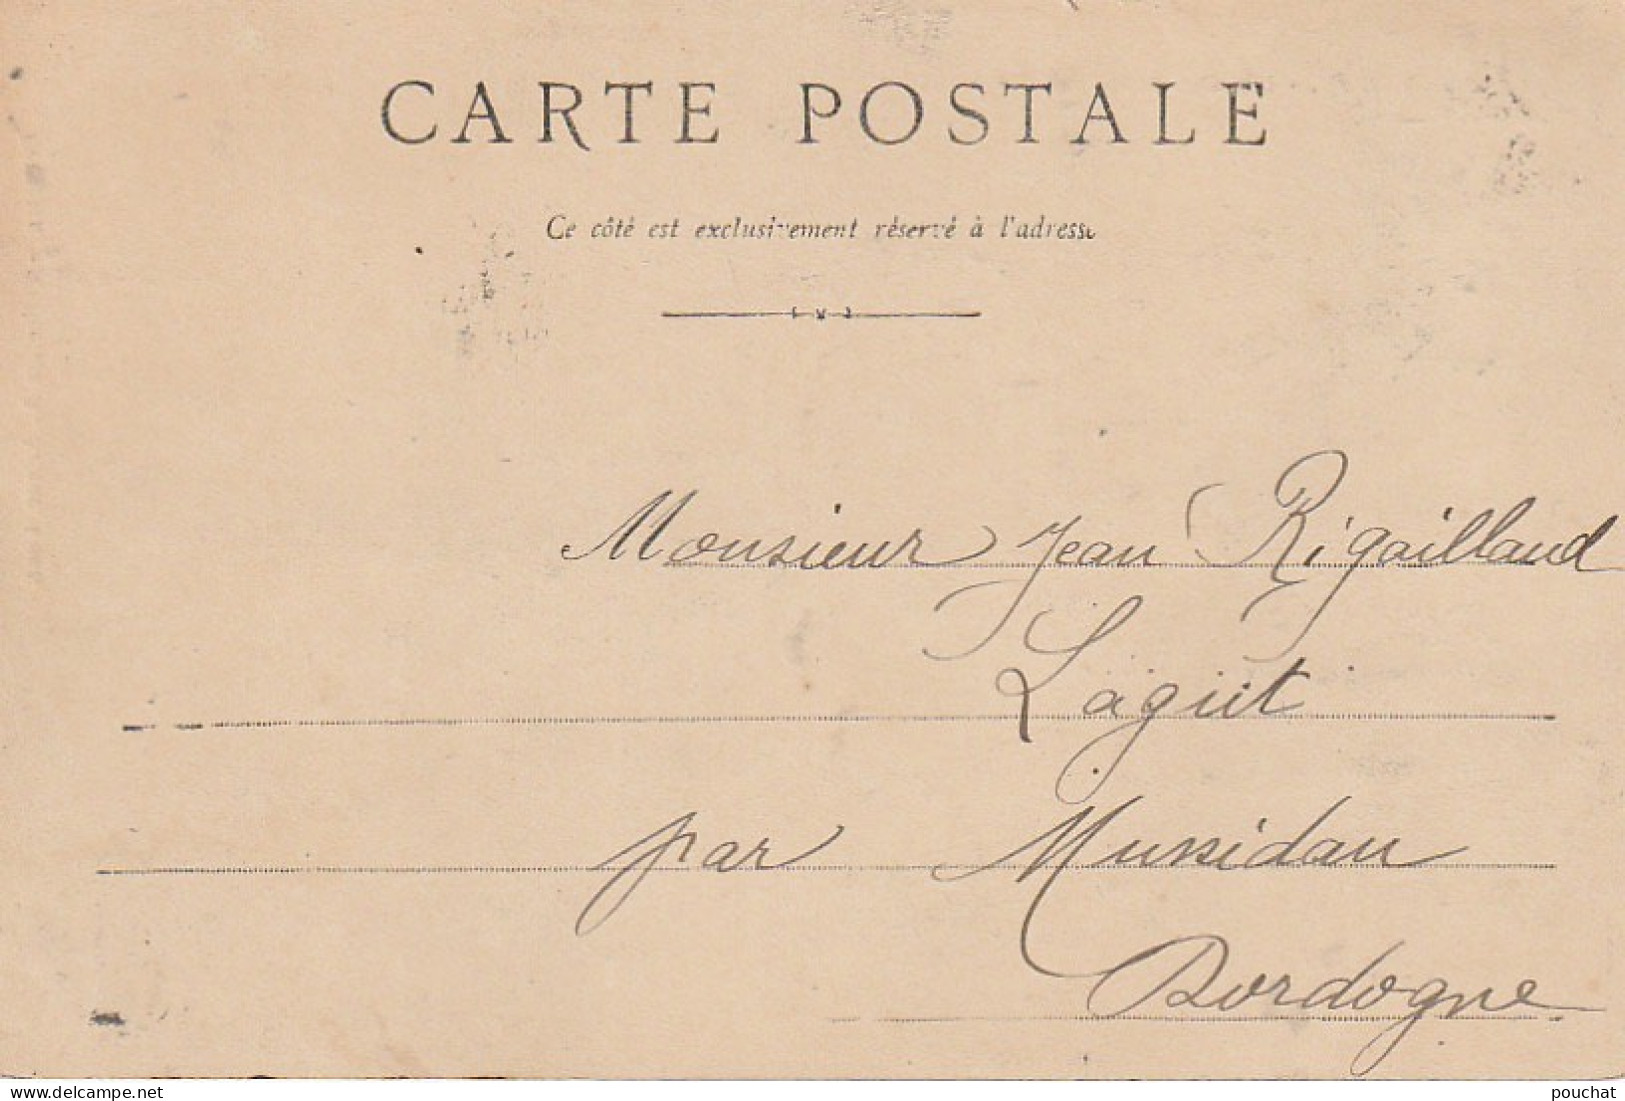 CARTE POSTALE
Ce côté est exclusivement réservé à l'adresse
Monsieur Jean Rigaillaud
Lagut
par Mussidan
Dordogne
www.delcampe.net
pouchat